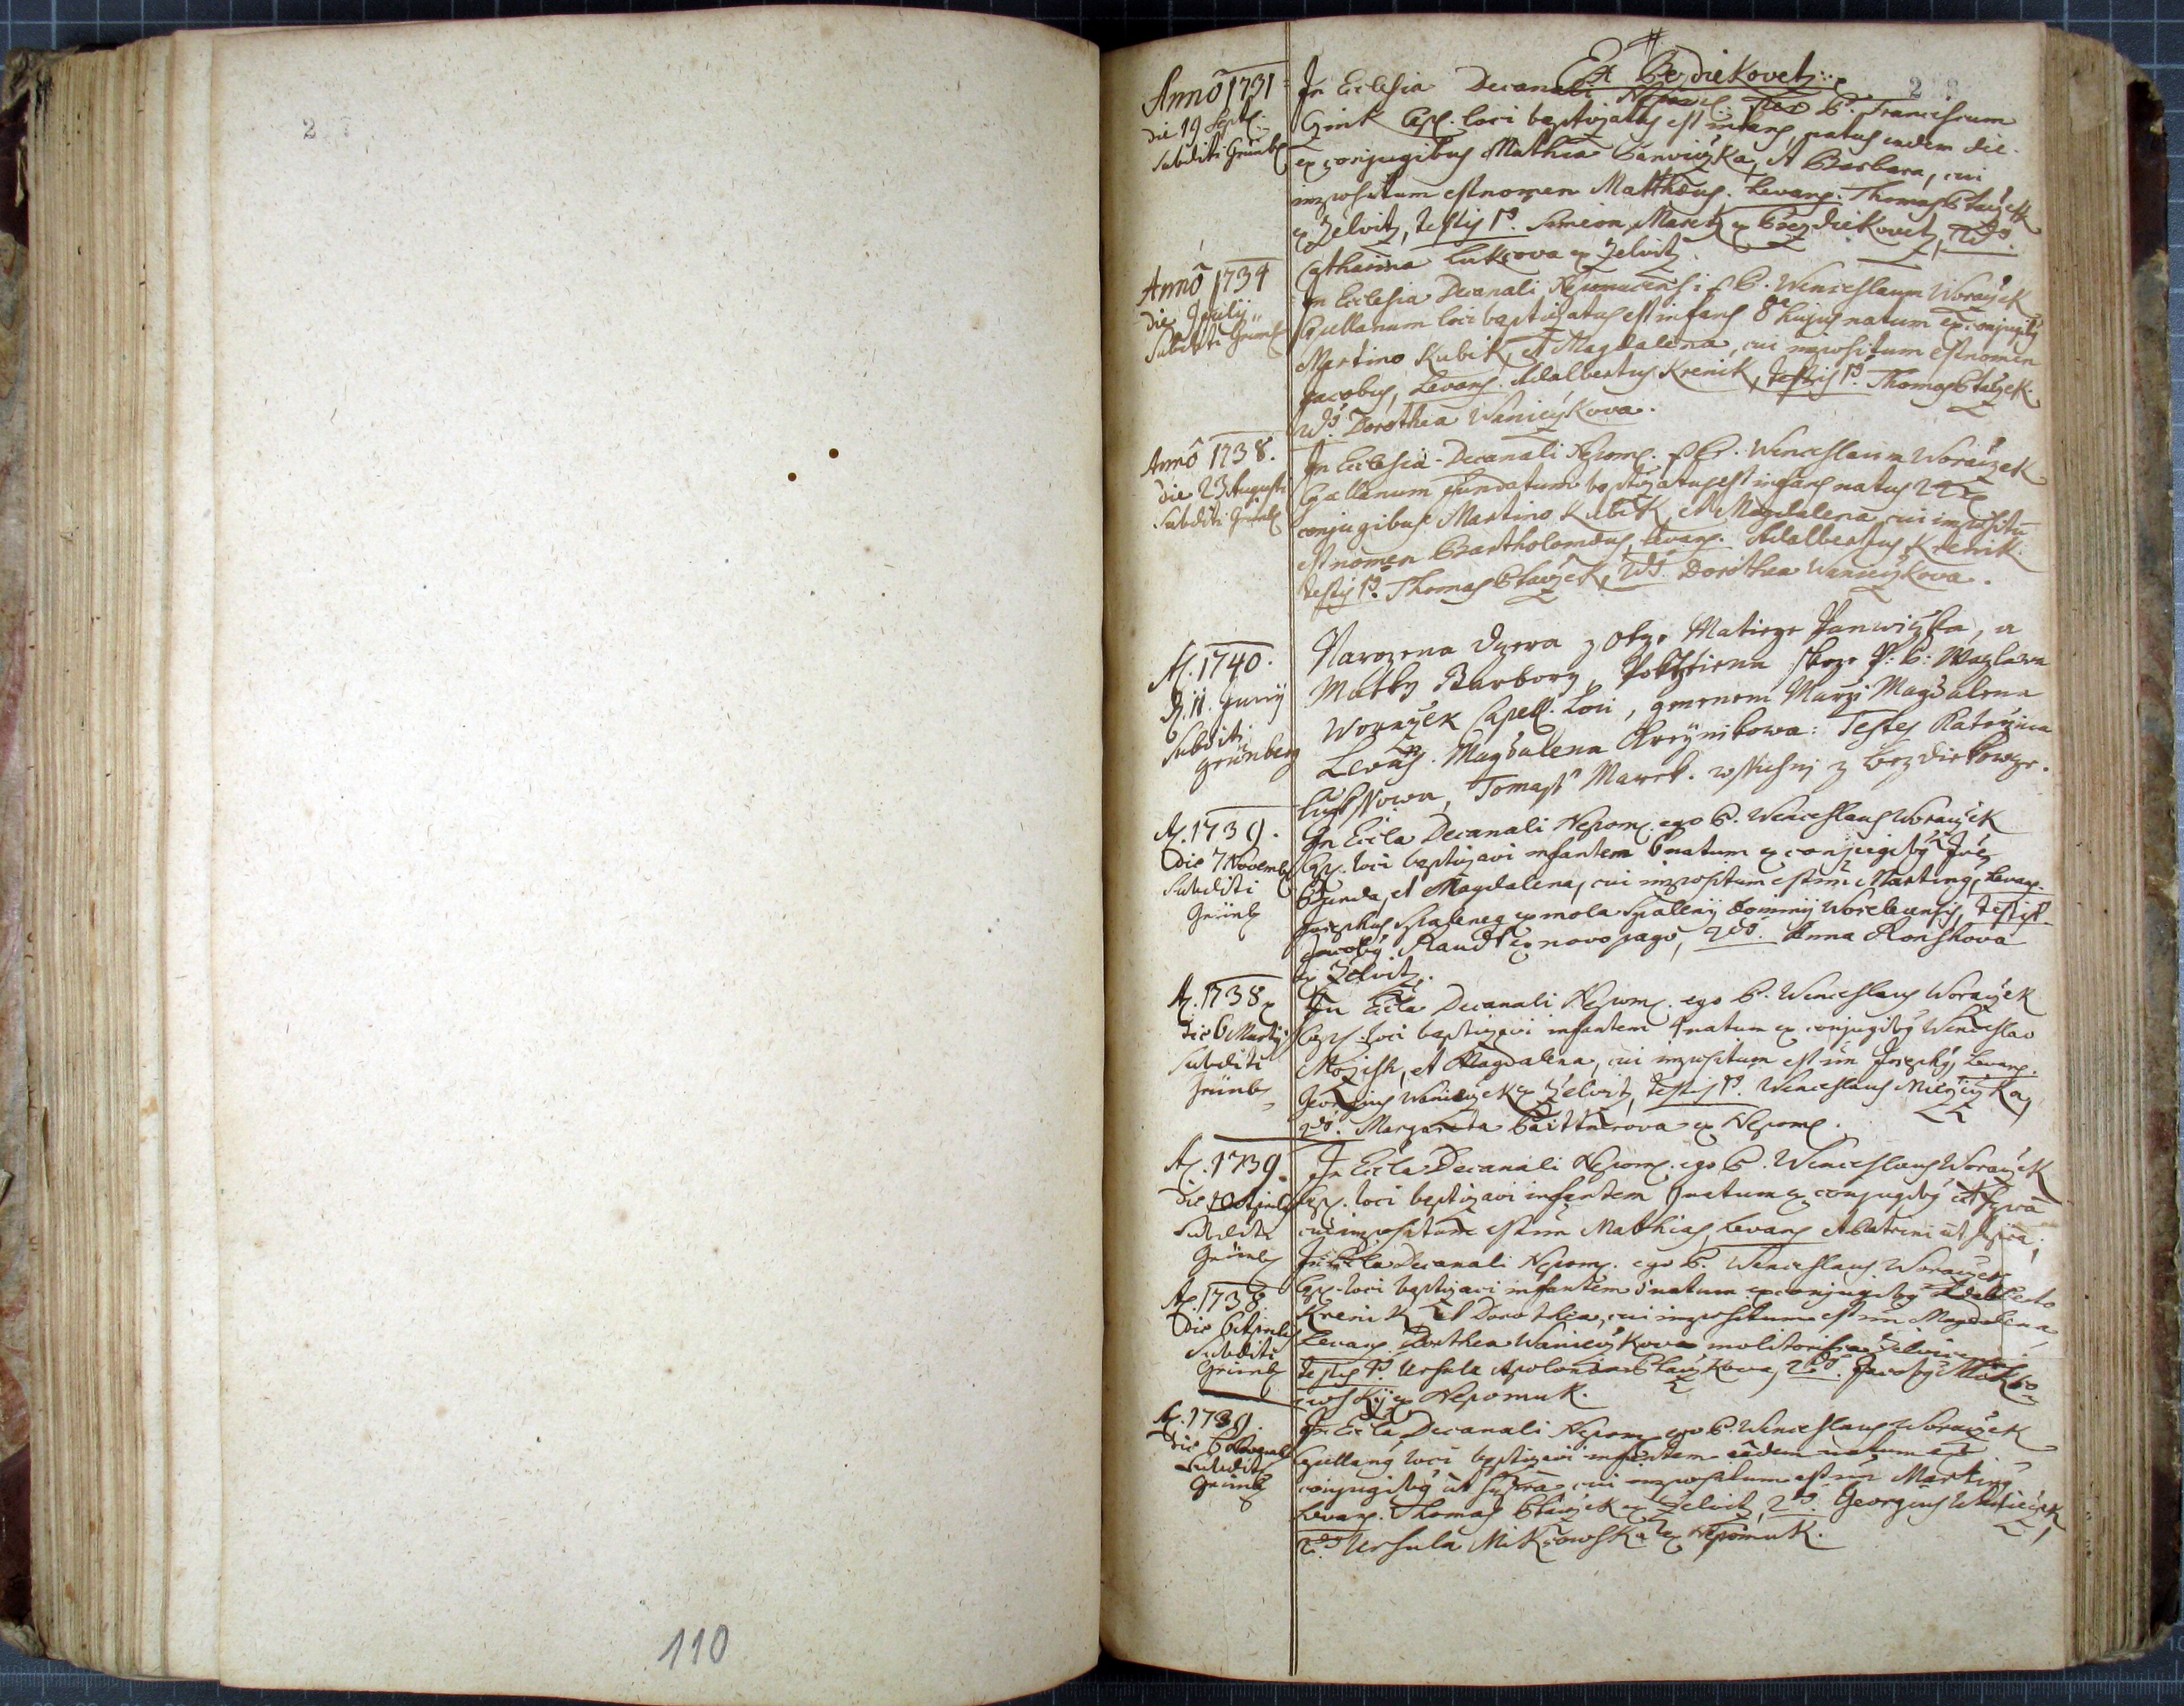 2 7
110
Ex Bezdiekovetz
2 8
Anno 1731
die 19 Septe.
Subditi Grünb.
In Ecclesia Decanali Nepom. per P. Franciscum
Czink Cap. loci baptizatus est infans, natus eadem die
ex conjugibus Mathia Panviczka, et Barbara, cui
impositum est nomen Matthaeus. Levans. Thomas Ptaczek
ex Zelvitz, testis 1s. Simeon Marek ex Bezdiekovetz, 2ds.
Catharina Lukssova ex Zelvitz.
Anno 1734
die Julij
Subditi Grünb.
In Ecclesia Decanali Nepomucensi P. Wenceslaum Woraczek
Capellanum loci baptizatus est infans 8 hujus natum ex conjugibus
Martino Kubik, et Magdalena, cui impositum est nomen
Jacobus, Levans. Adalbertus Krenik, testis 1s. Thomas Ptaczek.
2ds. Dorothea Wanieczkova.
Anno 1738.
die 23 Augusti
Subditi Grünb.
In Ecclesia Decanali Nepom. P. Wenceslaum Woraczek
Capellanum fundatum baptizatus est infans natus 22 ex
conjugibus Martino Kubik, et Magdalena, cui impositu
est nomen Bartholomaeus, Levans. Adalbertus Krenik.
testis 1s. Thomas Ptaczek, 2ds. Dorothea Wanieczkova.
A. 1740.
D. 11. Junij
Subditi
Grünberg
Narozena dzera z Otze Matieze Panwiczka, a
Matky Barbory, Pokrztiena skrze P: P: Waczlawa
Woraczek Capell. Loci, gmenem Marzi Magdalena
Levans. Magdalena Krzynikowa: Testes Katerzina
Lukssowa, Tomass Marek. wssichni z Bezdiekowcze.
A. 1739.
Die 7 Novemb.
Subditi
Grünb.
In Eccla Decanali Nepom. ego P. Wenceslaus Woraczek
Cap. loci baptizavi infantem 6 natum ex conjugibus
Bunda, et Magdalena, cui impositum est nn Martinus, Levans.
Josephus Spaleney ex mola Spaleny Dominij, testis 1s
Jacobus Raudt ex novo pago, 2ds. Anna Ronskova
ex Zelvitz.
A. 1738
die 6 Martij
Subditi
Grünb.
In Eccla Decanali Nepom. ego P. Wenceslaus Woraczek
Cap. loci baptizavi infantem 4 natum ex conjugibus Wenceslao
et Magdalena, cui impositum est nn Josephus, Levans.
Georgius Wanieczek ex Zelvitz, testis 1s. Wenceslaus
2ds. Margareta ex Nepom.
A. 1739
die Aprilis
Subditi
Grünb.
In Eccla Decanali Nepom. ego P. Wenceslaus Woraczek
Cap. loci baptizavi infantem natum ex conjugibus ut supra
cui impositum est nn Mathias, Levans et Patrini ut supra.
A. 1738
Die 6 Aprilis
Subditi
Grünb.
In Eccla Decanali Nepom. ego P. Wenceslaus Woraczek
Cap. loci baptizavi infantem natum ex conjugibus Adalberto
Krenik, et Dorothea, cui impositum est nn Magdalena
Levans. Dorthea Wanieczkova molitorissa
testis 1s. Ursula Apolonia Ptaczkova, 2ds. Jacobus
ex Nepomuk.
A. 1739.
die 6
Subditi
Grünb.
In Eccla Decanali Nepom. ego P. Wenceslaus Woraczek
Capellanus loci baptizavi infantem eadem natum
conjugibus ut supra cui impositum est nn Martinus
Levans. Thomas Ptaczek ex Zelvitz, Georgius Wanieczek,
2ds Ursula ex Nepomuk.